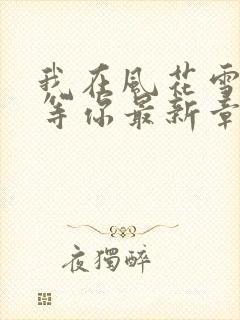 我在風花雪
等你最新章
夜獨醉